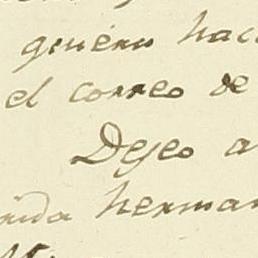 quiéru hac
el correo de
Deseo a
rida herman